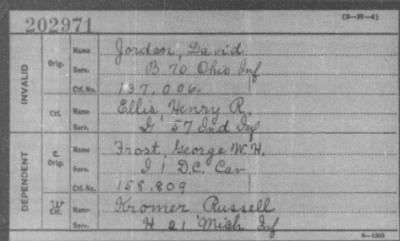 202971
(3—20—4)
INVALID
Orig. Name Jordan, David
Serv. B 70 Ohio Inf
Ctf. No. 137,006.
Ctf. Name Ellis Henry R.
Serv. G 57 Ind Inf
DEPENDENT
C. Orig. Name Frost, George W. H.
Serv. I 1 D.C. Cav
Ctf. No. 158.809
W Ctf. Name Kromer Russell
Serv. H 21 Mich Inf